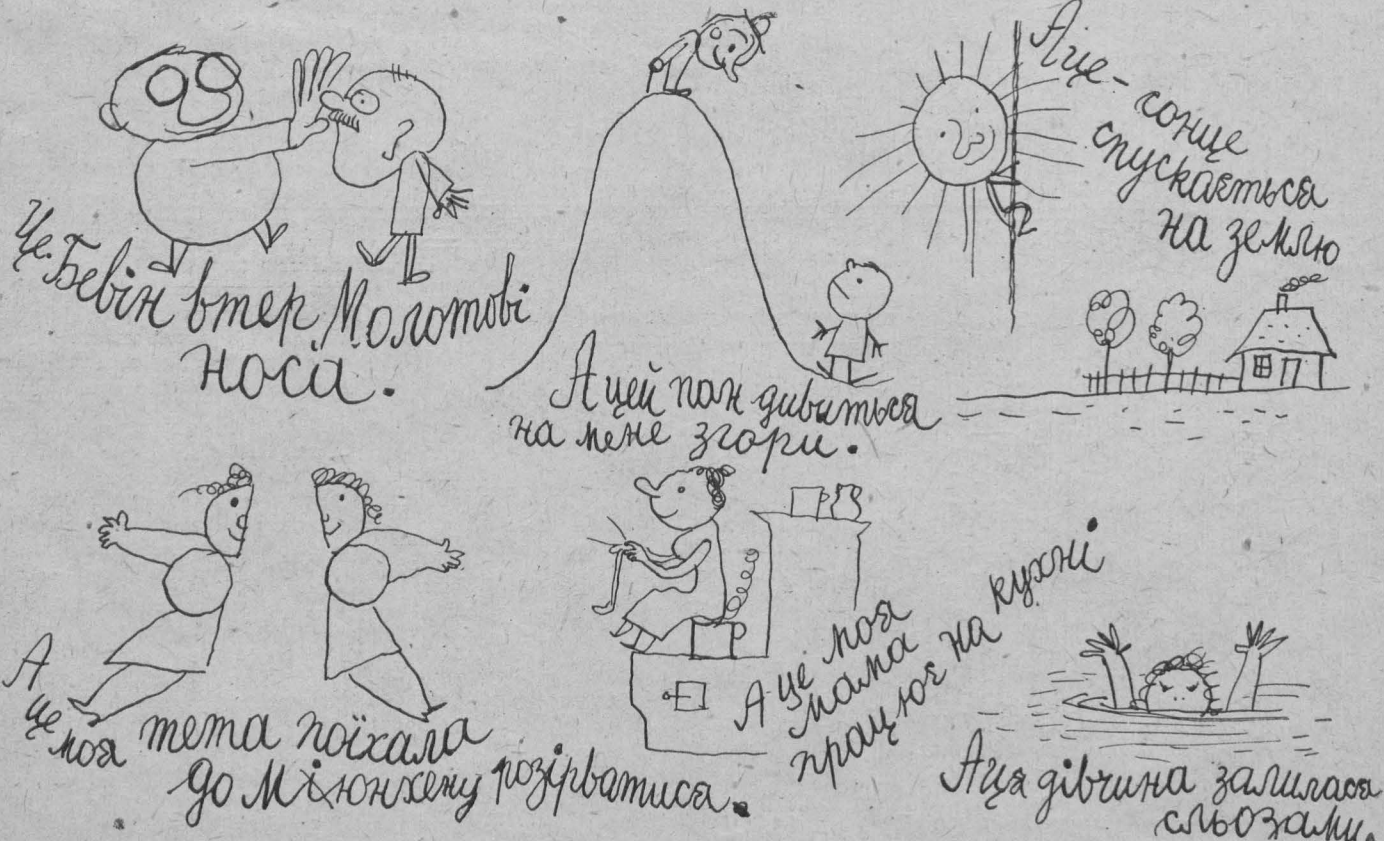 Це Бевін втер Молотові
носа.
А цей пан дивиться
на мене згори.
А це - сонце
спускається
на землю
А
це
моя тета поїхала
до Мюнхену розірватися.
А це моя
мама
працює на кухні
А ця дівчина залилася
сльозами.